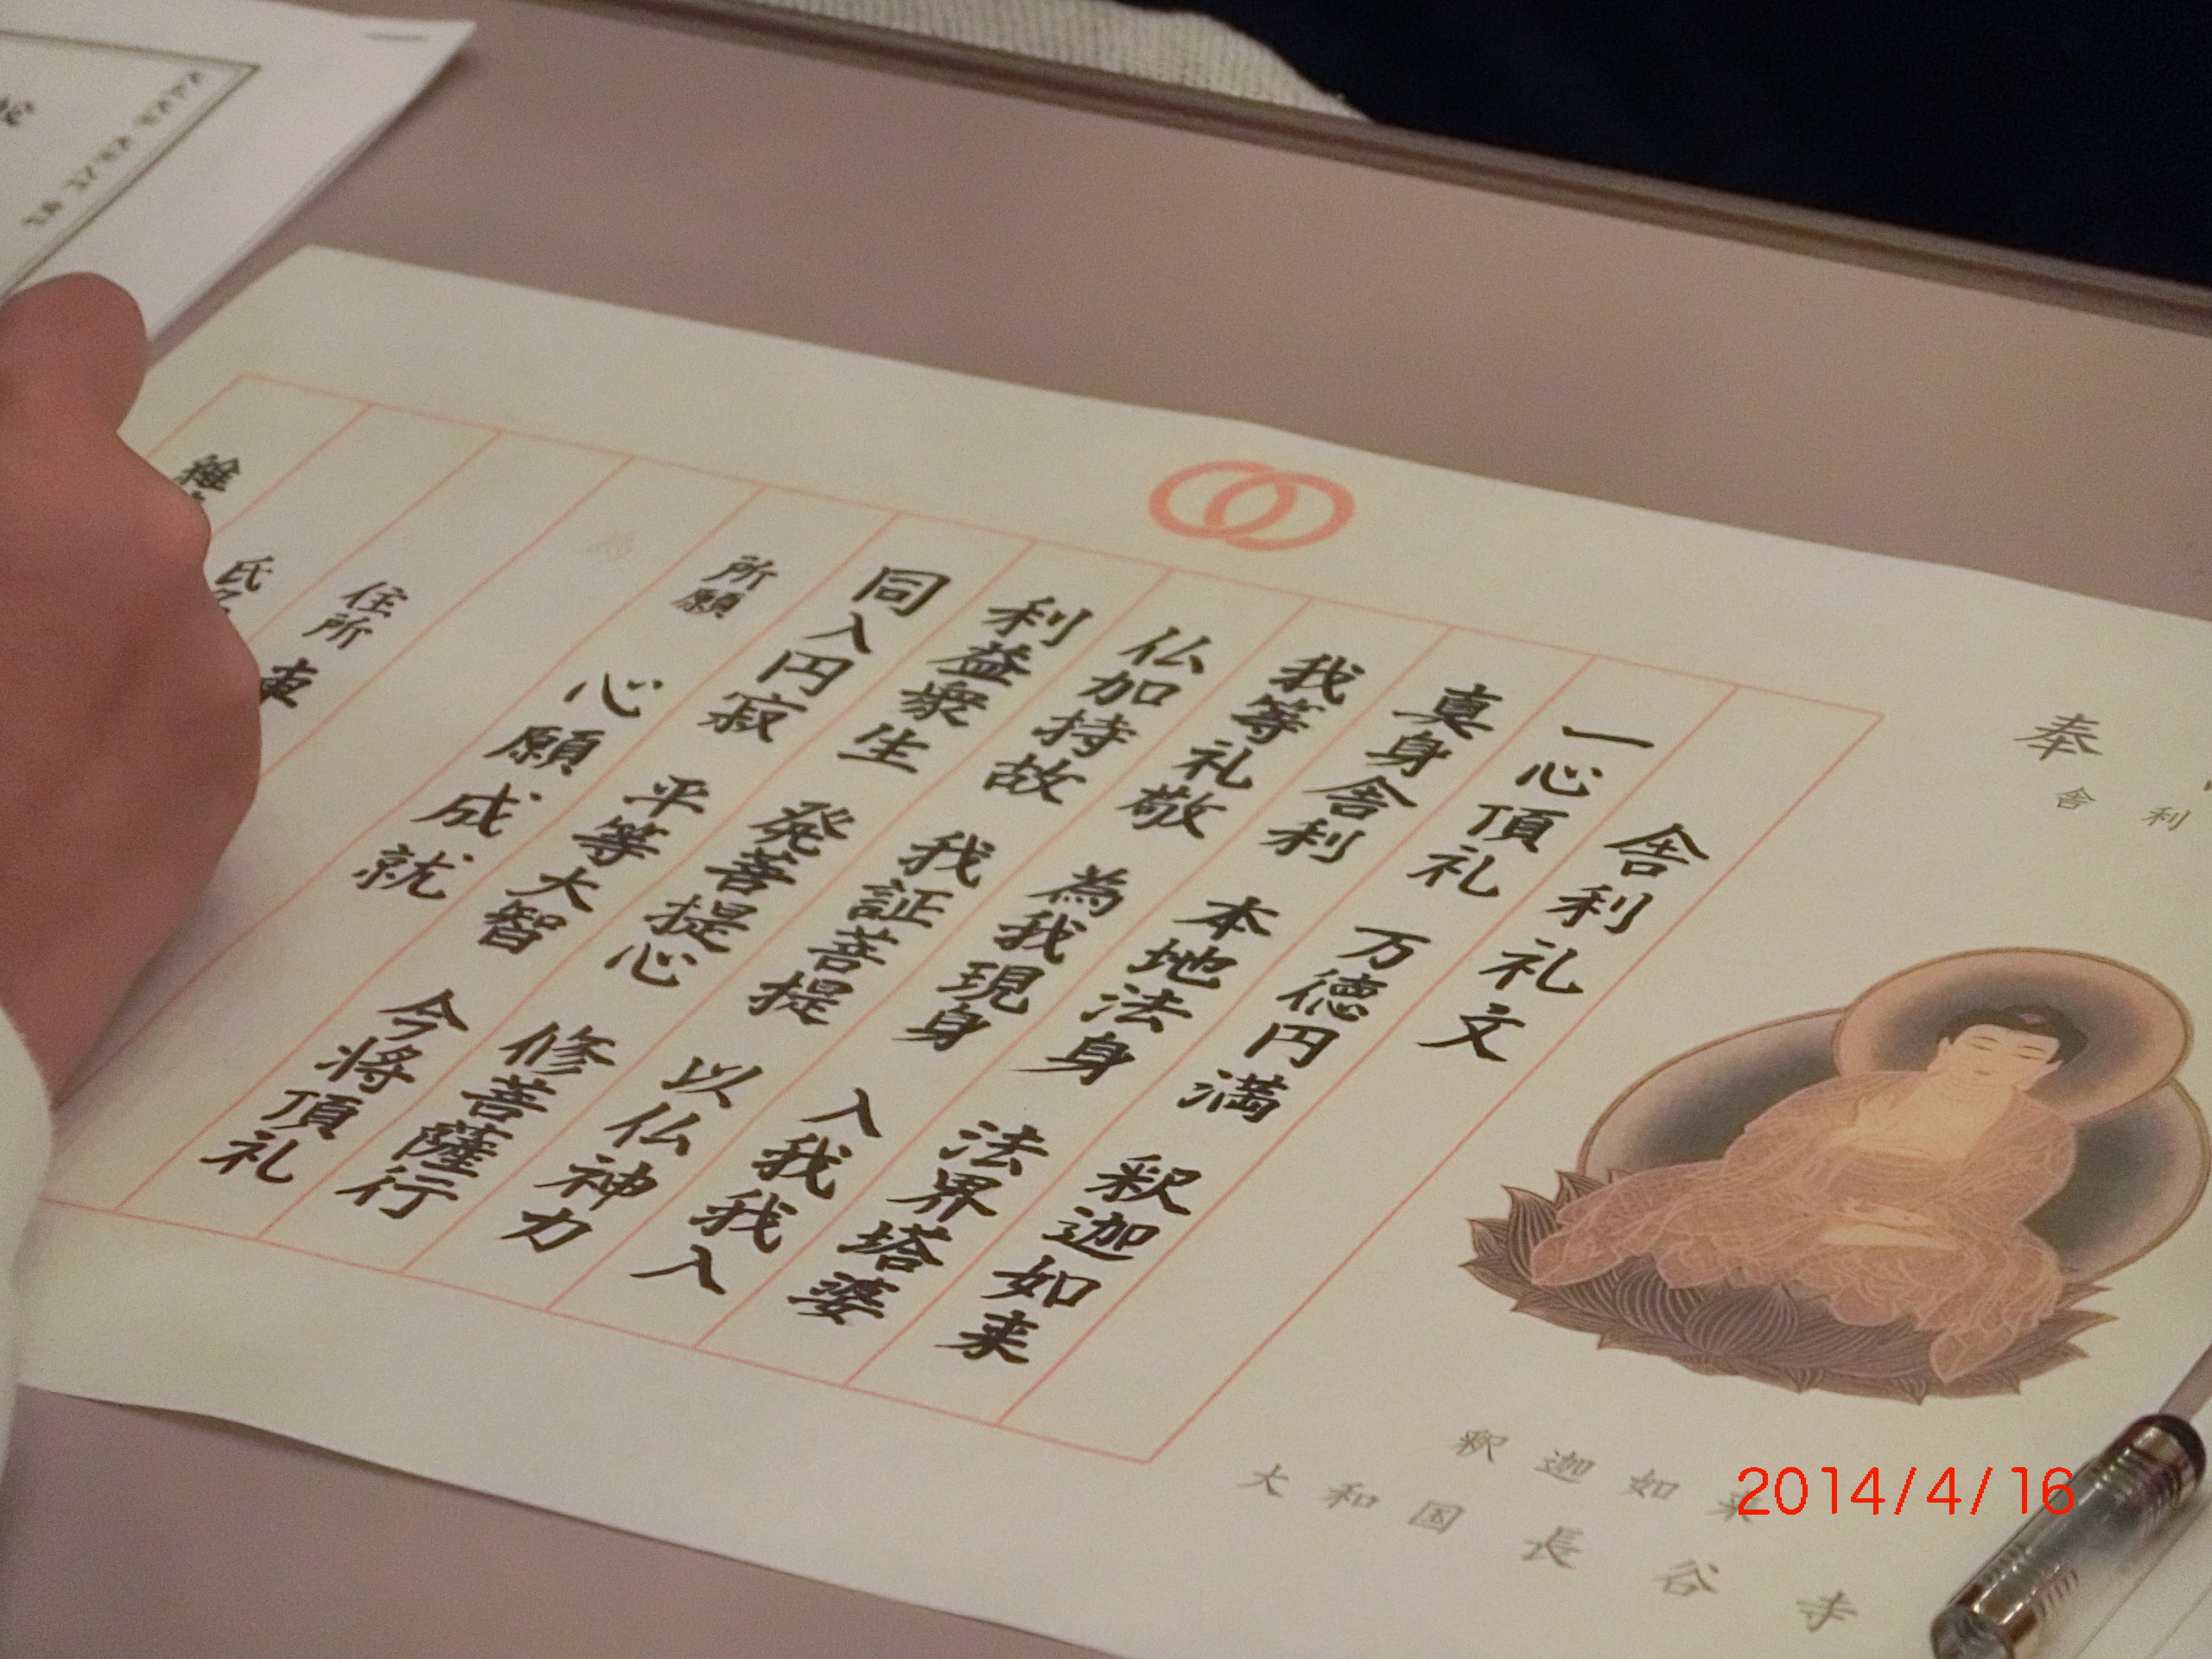 奉
舎利
釈迦如来
大和国 長谷寺
舎利礼文
一心頂礼 万徳円満 釈迦如来
真身舎利 本地法身 法界塔婆
我等礼敬 為我現身 入我我入
仏加持故 我証菩提 以仏神力
利益衆生 発菩提心 修菩薩行
同入円寂 平等大智 今将頂礼
所願 心願成就
住所
氏
2014/4/16